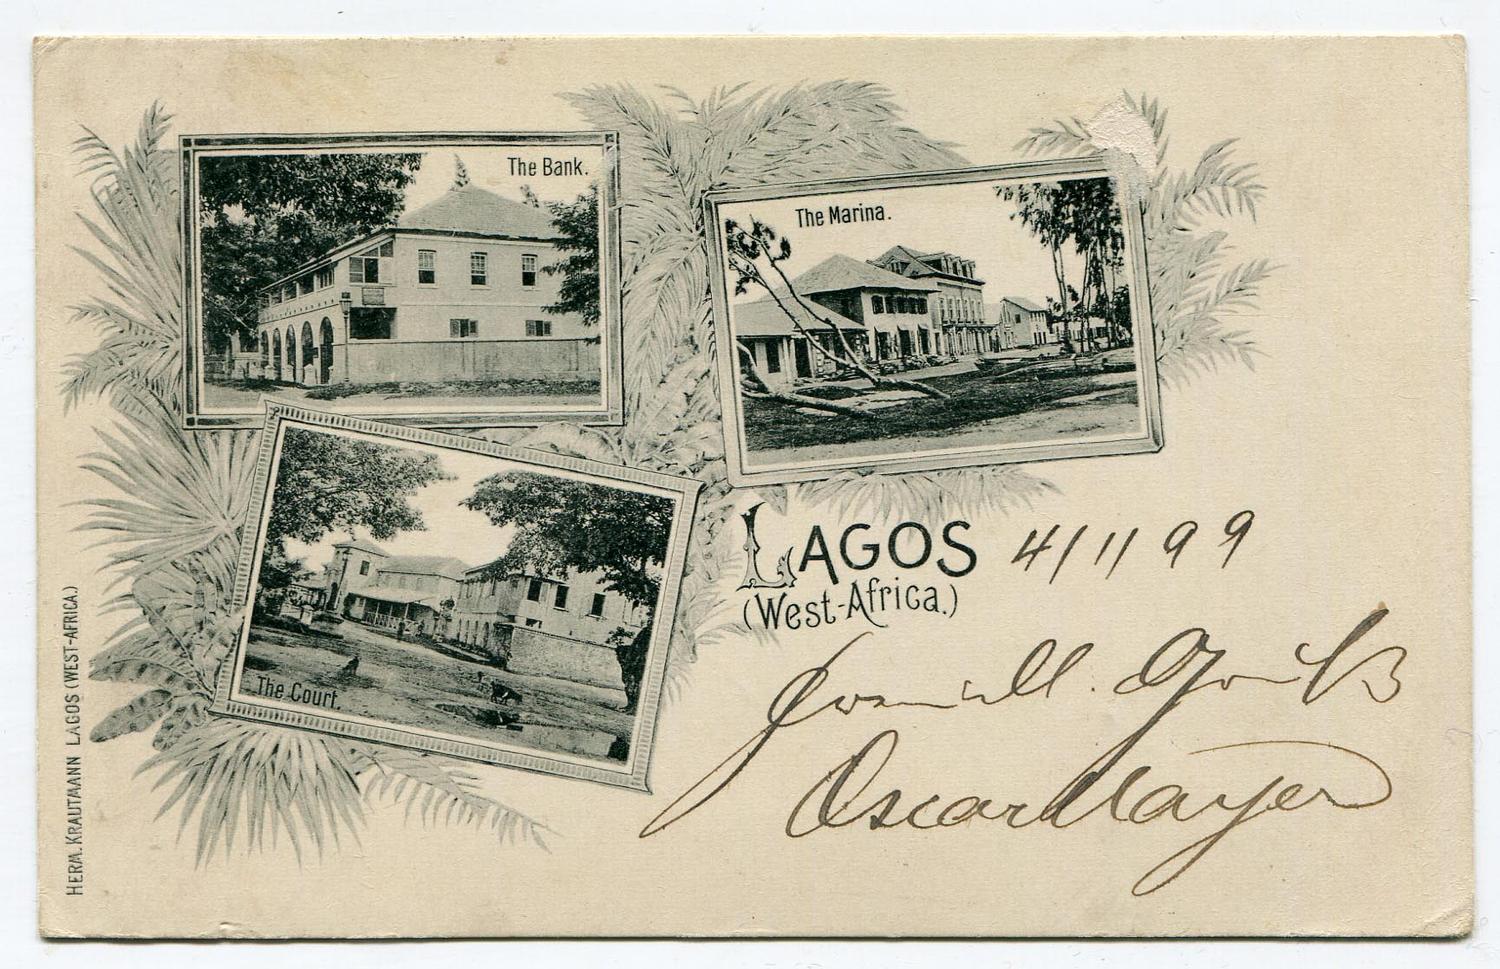 The Bank.
The Marina.
The Court.
LAGOS 4/11 99
(West-Africa.)
Oscar Mayer
HERM. KRAUTMANN LAGOS (WEST-AFRICA.)